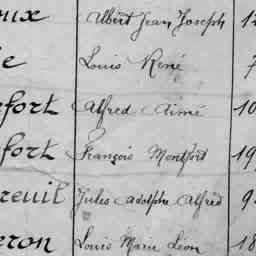 oux Albert Jean Joseph 12
e Louis René 7
efort Alfred Aimé 10
fort François Montfort 19
reuil Jules Adolphe Alfred 9
eron Louis Marie Léon 18